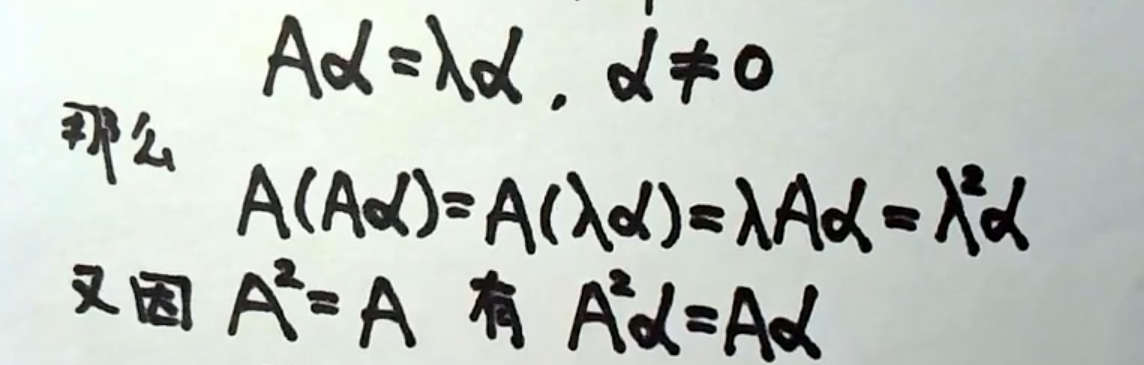 Aα=λα, α≠0
那么
A(Aα)=A(λα)=λAα=λ²α
又因 A²=A 有 A²α=Aα